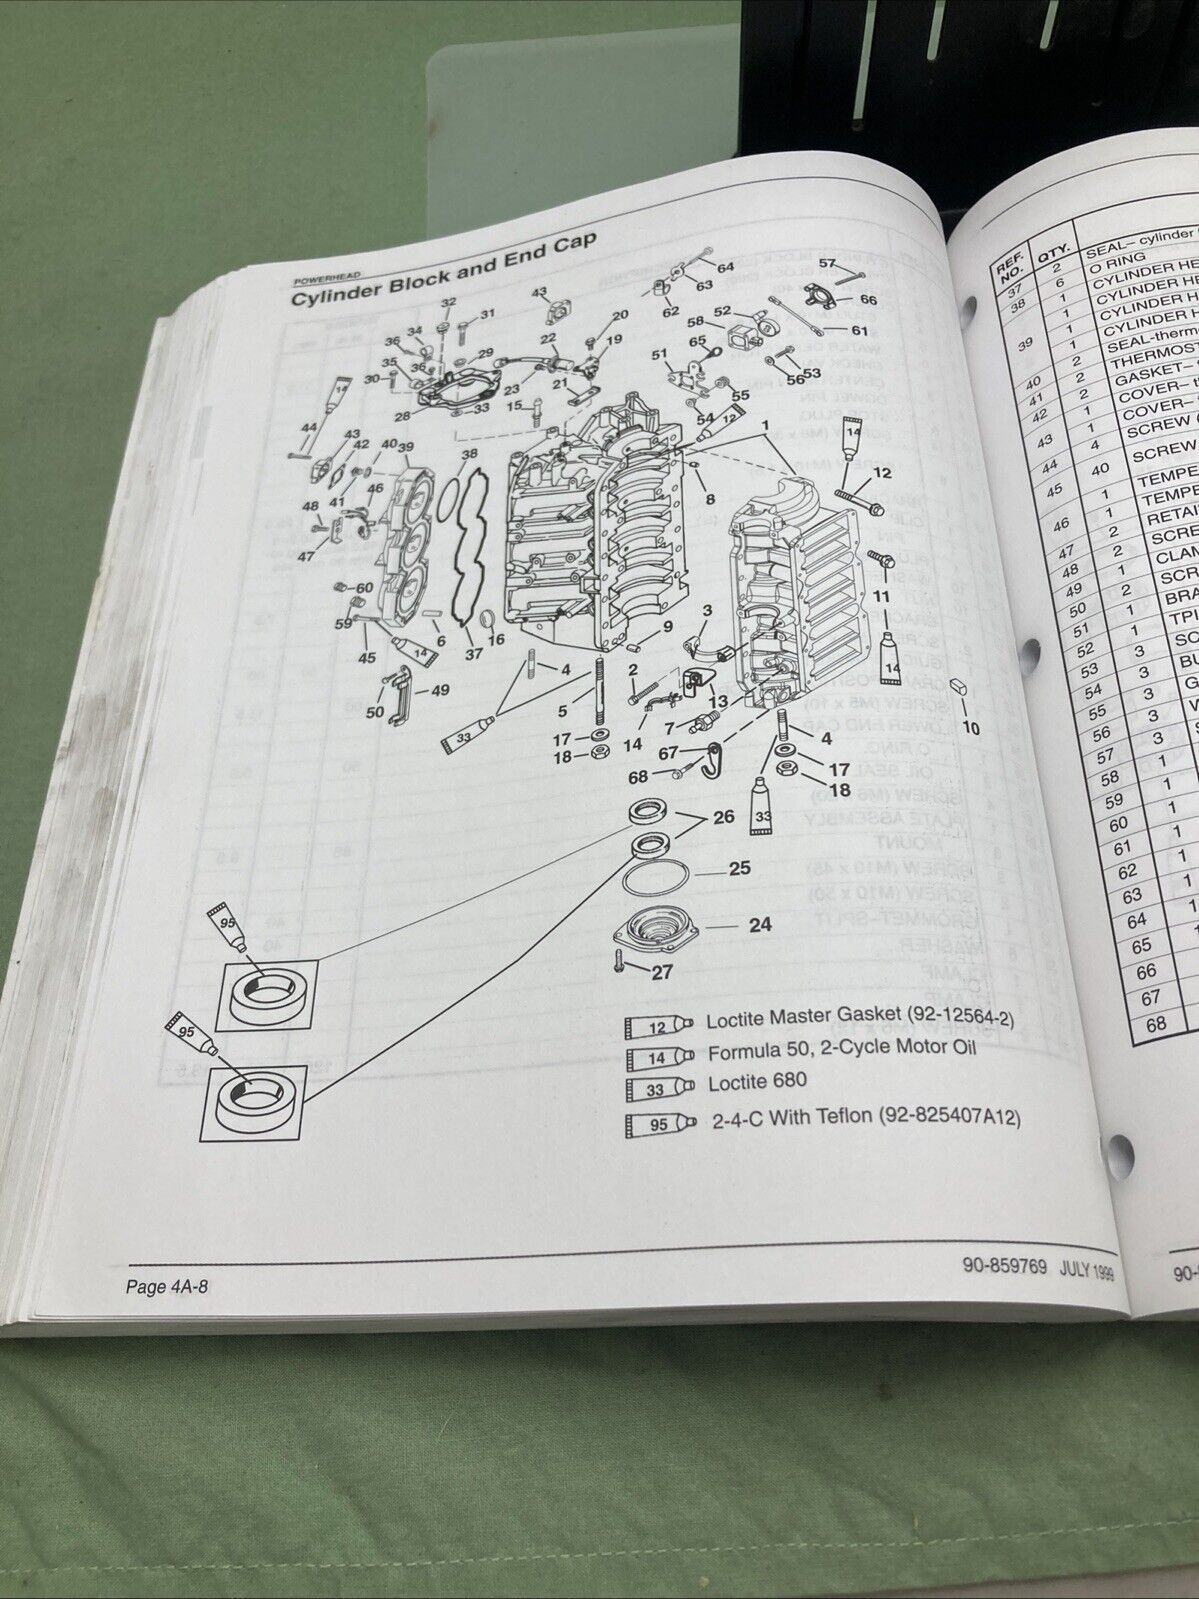 POWERHEAD
Cylinder Block and End Cap
57
64
63
66
43
32
31
62
52
58
61
20
34
36
22
19
65
53
35
36
29
51
56
30
23
21
55
28
33
15
54
12
1
14
44
43
42
40
39
38
14
12
41
46
8
48
47
11
60
3
59
9
6
16
14
37
45
4
2
14
49
5
13
50
7
10
33
17
14
67
4
18
17
68
18
33
26
25
24
27
95
95
12 Loctite Master Gasket (92-12564-2)
14 Formula 50, 2-Cycle Motor Oil
33 Loctite 680
95 2-4-C With Teflon (92-825407A12)
Page 4A-8
90-859769 JULY 1999
REF. NO. QTY.
37 2 SEAL– cylinder
38 6 O RING
39 1 CYLINDER HE
1 CYLINDER H
1 CYLINDER H
40 2 SEAL-therm
41 2 THERMOST
42 2 GASKET–
43 1 COVER– t
COVER–
44 4 SCREW (
45 40 SCREW
46 1 TEMPE
1 TEMPE
47 2 RETAI
48 2 SCRE
49 1 CLAM
50 2 SCR
51 1 BRA
52 1 TPI
53 3 SC
54 3 BU
55 3 G
56 3 W
57 3 S
58 1
59 1
60 1
61 1
62 1
63 1
64 1
65 1
66
67
68
90-